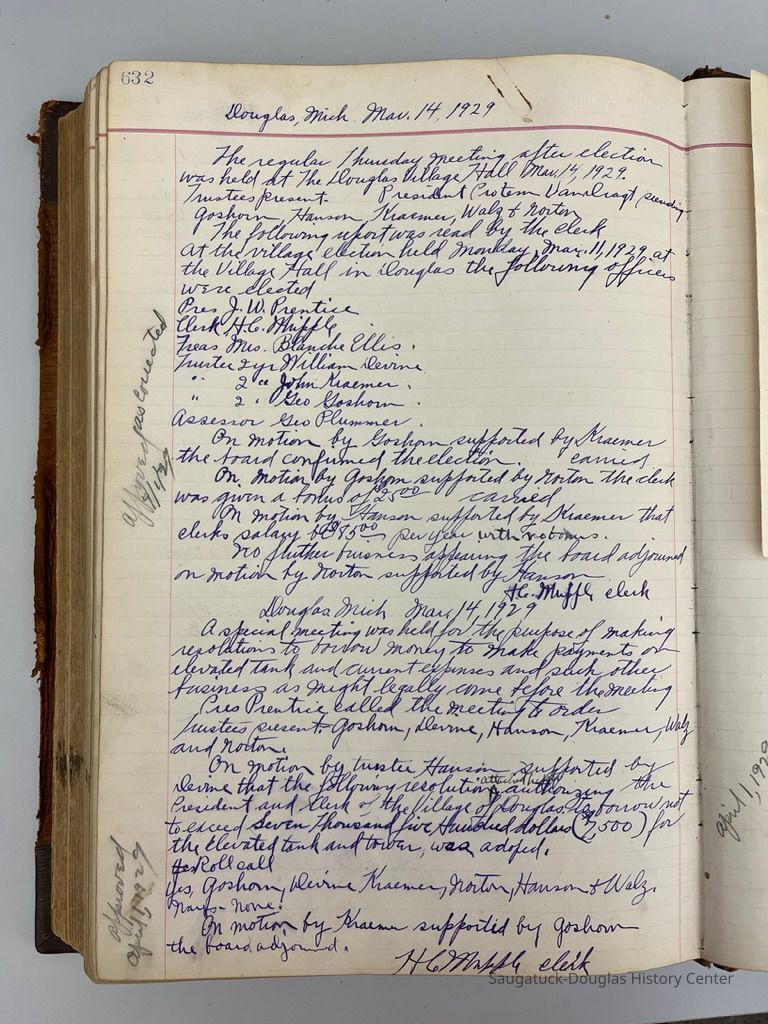 632
Douglas, Mich. Mar. 14, 1929
The regular Thursday meeting after election
was held at The Douglas Village Hall Mar. 14, 1929.
Trustees present. President Protem VanDragt presiding
Goshorn, Hanson, Kraemer, Walz & Norton
The following report was read by the clerk
At the village election held Monday, Mar. 11, 1929 at
the Village Hall in Douglas the following officers
were elected
Pres J. W. Prentice
Clerk H.C.
Treas Mrs. Blanche Ellis.
Trustee 2 yr William Devine
" 2 " John Kraemer.
" 2 " Geo Goshorn.
Assessor Geo Plummer.
On motion by Goshorn supported by Kraemer
the board confirmed the election. carried
On motion by Goshorn supported by Norton the clerk
was given a bonus of 25.00 carried
On motion by Hanson supported by Kraemer that
clerks salary be $85.00 per year with no bonus.
No further buisness appearing the board adjourned
on motion by Norton supported by Hanson
H.C. clerk
Douglas Mich Mar. 14, 1929
A special meeting was held for the purpose of making
resolutions to borrow money to make payments on
elevated tank and current expenses and such other
business as might legally come before the meeting
Pres Prentice called the meeting to order
Trustees present: Goshorn, Devine, Hanson, Kraemer, Walz
and Norton.
On motion by trustee Hanson supported by
Devine that the following resolution attached authorizing the
President and Clerk of the Village of Douglas to borrow not
to exceed Seven Thousand five Hundred dollars ($7,500) for
the elevated tank and tower, was adopted.
Roll call
Yes, Goshorn, Devine Kraemer, Norton, Hanson & Walz.
Nays - None.
On motion by Kraemer supported by Goshorn
the board adjourned.
H C clerk
approved as corrected
approved
april 1, 1929
april 1, 1929
Saugatuck-Douglas History Center